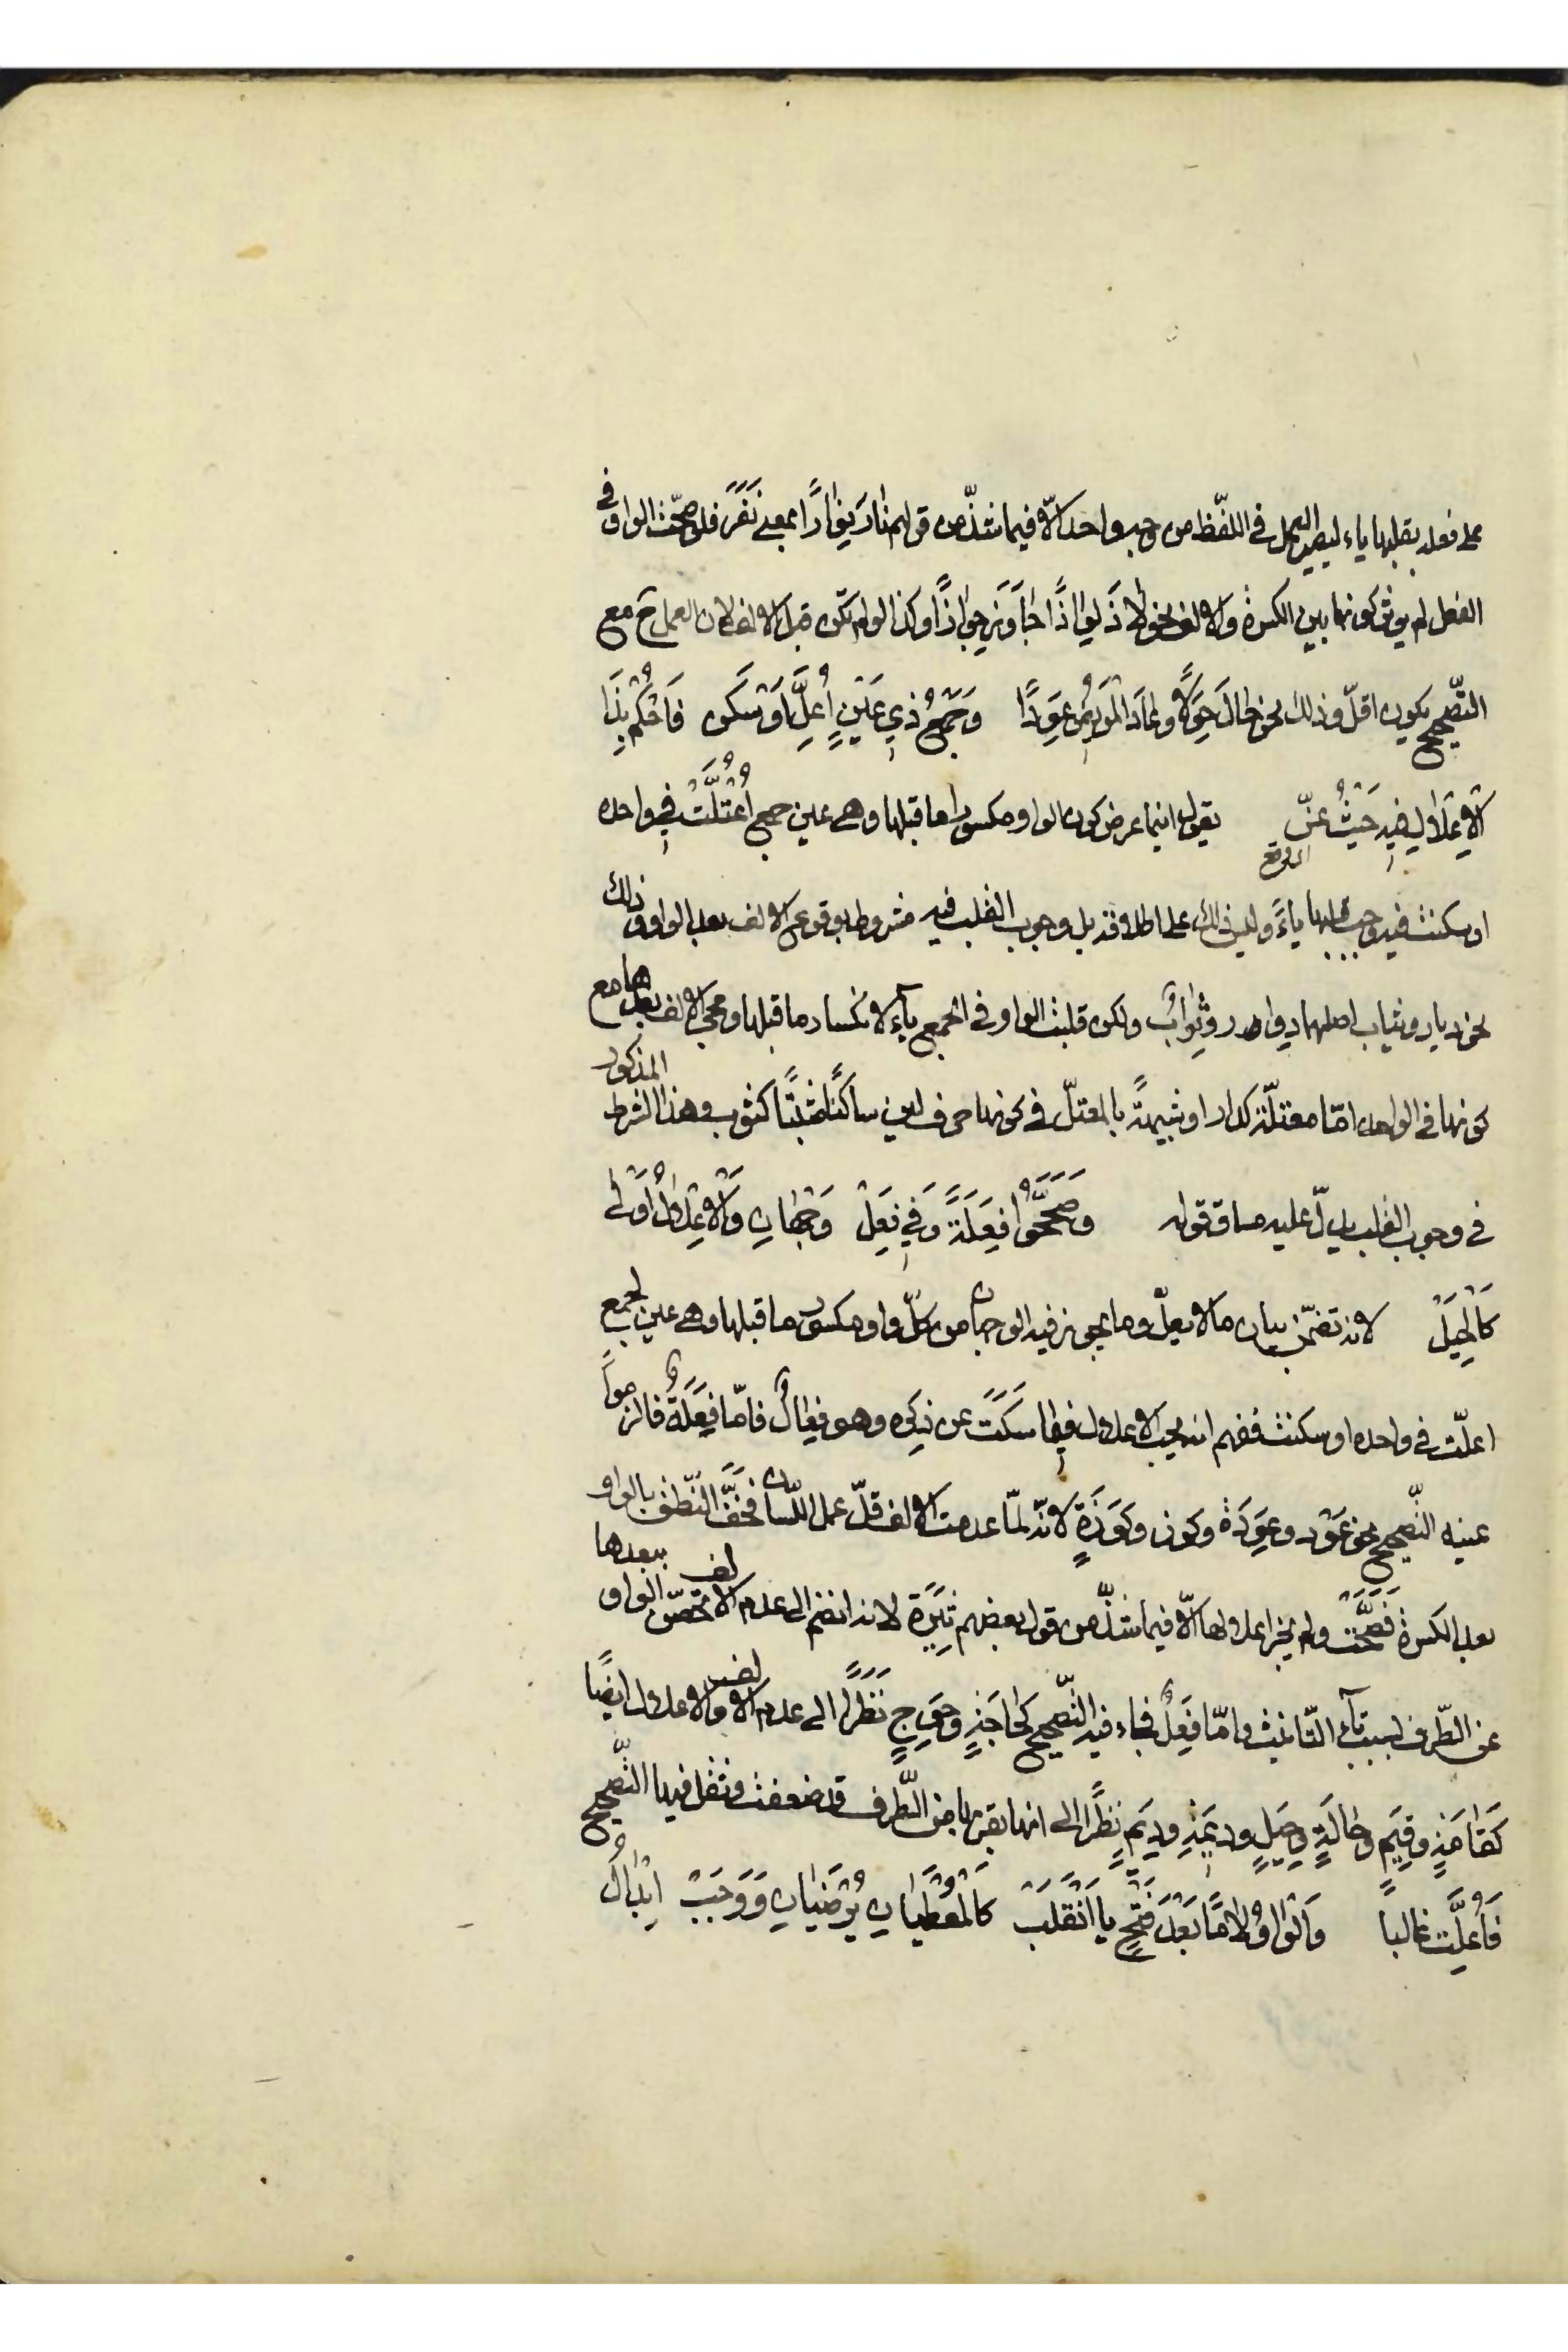 على فعله بقلبها ياء ليصير العمل في اللفظ من وجه واحد الّا فيما شذّ من قولهم نار يَنِوارًا بمعنى نَفَرَ فلو صحّت الواو في
الفعل لم يوثر كونها بين الكسرة والالف نحو لاوَذَ لِواذًا وجاوَرَ جِوارًا وكذا لو لم تكن قبل الالف لان العمل ح مع
التّصحيح يكون اقلّ وذلك نحو حالَ حِوَلًا وعادَ المريض عِوَدًا وَجَمْعُ ذِي عَيْنٍ اُعِلَّ اَوْ سَكَنْ فَاحْكُمْ بِذَا
الْاِعْلَالِ فِيهِ حَيْثُ عَنّ يقول اينما عرض كون الواو مكسورا ما قبلها وهي عين جمع اُعْتُلَّتْ في واحده
او سكنت فيه وجب قلبها ياءً وليس ذلك على اطلاقه بل وجوب القلب فيه مشروط بوقوع الالف بعد الواو وذلك
نحو ديار وثياب اصلهما دِوار وثِوابٌ ولكن قلبت الواو في الجمع ياء لانكسار ما قبلها ومجئ الالف بعدها مع
كونها في الواحد امّا معتلّة كدار او شبيهة بالمعتلّ في كونها حرف لين ساكنًا ميّتًا كثوب وهذا الشرط المذكور
في وجوب القلب يدلّ عليه مساق قوله وَصَحَّحُوا فِعَلَةً وَفِي فِعَلْ وَجْهَانِ وَالْاِعْلَالُ اَوْلَى
كَالْحِيَلْ لانه تضمّن بيان ما لا يعلّ وما يجوز فيه الوجهان من كلّ واو مكسور ما قبلها وهي عين لجمع
اعلّت في واحده او سكنت ففهم انه يجب الاعلال فيما سَكَتَ عن ذِكره وهو فِعالٌ فامّا فِعَلَةٌ فالزموا
عينه التّصحيح نحو عَوْد وعِوَدَة وكوز وكِوَزَةٍ لانّه لمّا عدمت الالف قلّ عمل اللّسان فخفّ النّطق بالواو
بعد الكسرة فَصَحَّت ولم يجز اعلالها الّا فيما شذّ من قول بعضهم ثِيَرَة لانه انضم الى عدم الالف تحصّن الواو ببعدها
عن الطّرف بسبب تاء التّانيث وامّا فِعَلٌ فجاء فيه التّصحيح كحاجَةٍ وحِوَجٍ نَظَرًا الى عدم الالف والاعلال ايضًا
كَقامَةٍ وقِيَمٍ وحالَةٍ وحِيَلٍ ودِيمَةٍ ودِيَمٍ نَظَرًا الى انها بقربها من الطّرف قد ضعفت وثقل فيها التّصحيح
فَاُعِلَّت غالبًا وَالْوَاوُ لَامًا بَعْدَ فَتْحٍ يَا انْقَلَبْ كَالْمُعْطَيَانِ يُرْضَيَانِ وَوَجَبْ اِبْدَالُ